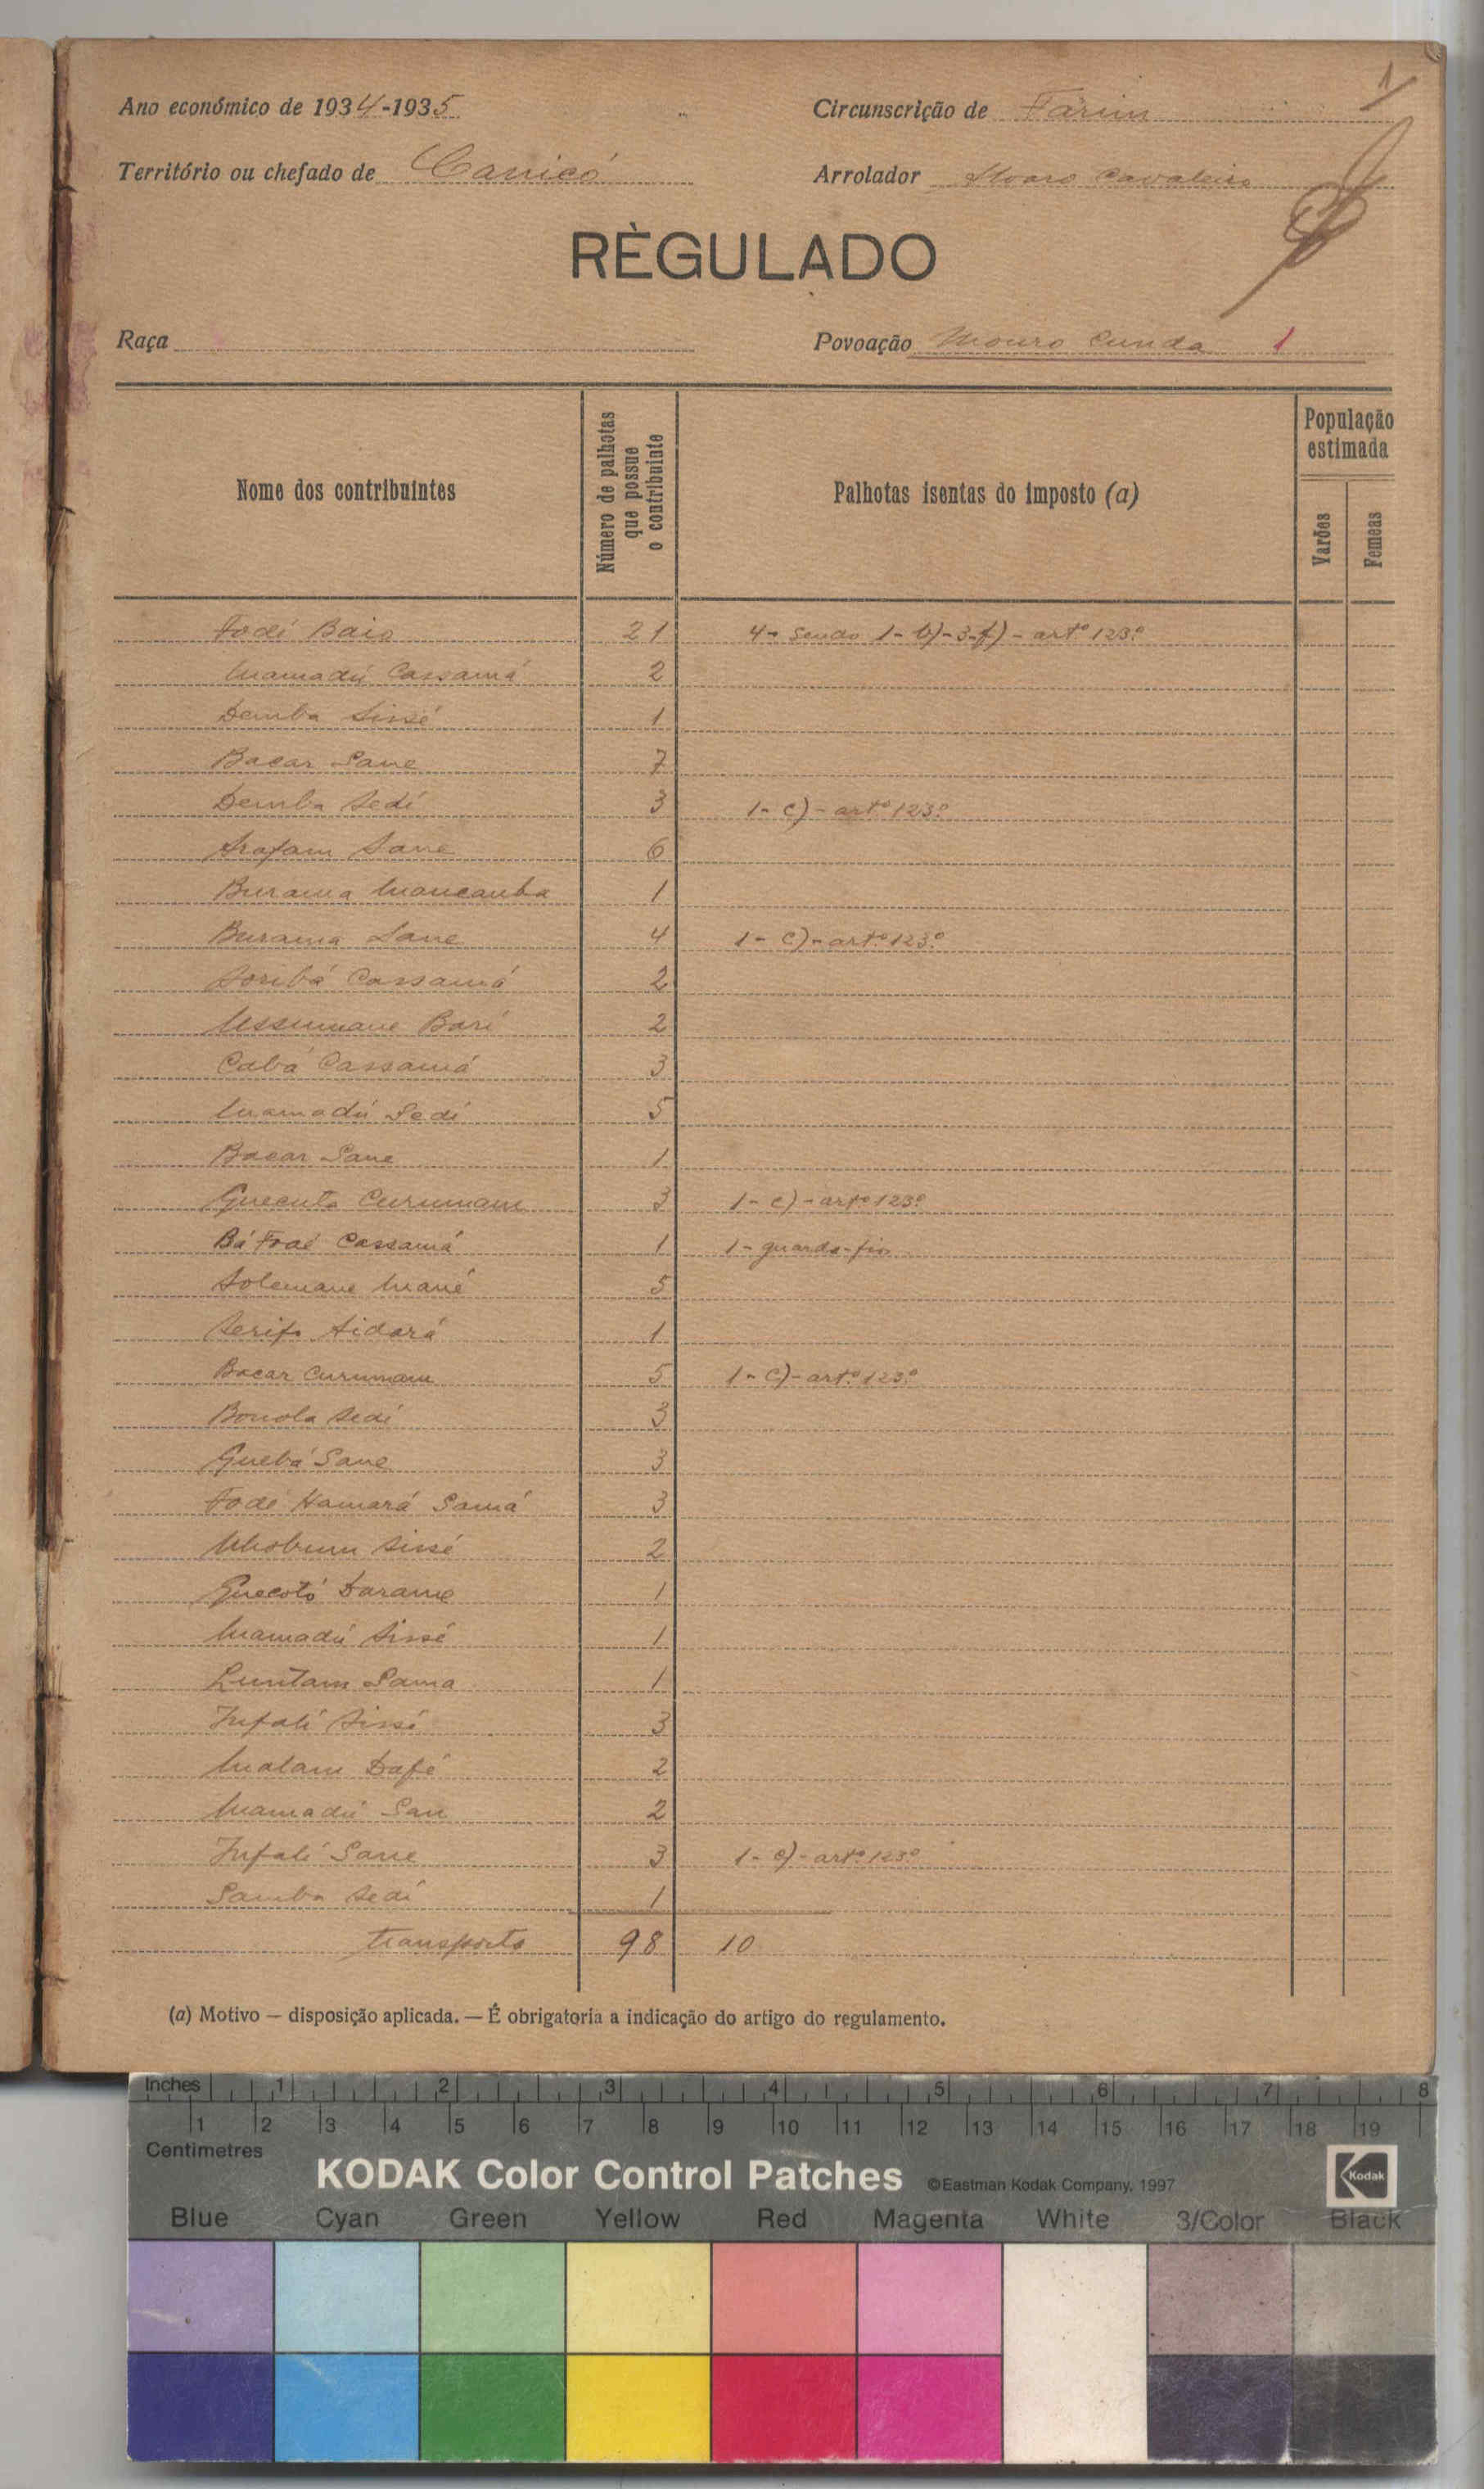 1
Ano económico de 1934-1935
Circunscrição de Farim
Território ou chefado de Canicó
Arrolador Alvaro Cavaleiro
RÈGULADO
Raça
Povoação Mouro Cunda 1
Nome dos contribuintes
Número de palhotas que possue o contribuinte
Palhotas isentas do imposto (a)
População estimada
Varões
Femeas
Fodé Baio 21 4 - sendo 1 - b) - 3 - f) - artº 123º
Mamadú Cassamá 2
Demba Sissé 1
Bacar Sane 7
Demba Sedi 3 1 - c) - artº 123º
Arafam Sane 6
Burama Mancanba 1
Burama Sane 4 1 - c) - artº 123º
Soribá Cassamá 2
Ussumane Bari 2
Cabá Cassamá 3
Mamadú Sedi 5
Bacar Sane 1
Quecuta Curumam 3 1 - c) - artº 123º
Bá Fodé Cassamá 1 1 - guarda-fios
Solemane Mané 5
Serifo Aidará 1
Bacar Curumam 5 1 - c) - artº 123º
Bonola Sedi 3
Quebá Sane 3
Fodé Hamará Samá 3
Sissé 2
Quecotó Darame 1
Mamadú Sissé 1
Luntam Sama 1
Infali Sissé 3
Malam Dafé 2
Mamadú San 2
Infali Sane 3 1 - c) - artº 123º
Samba Sedi 1
Transporte 98 10
(a) Motivo — disposição aplicada. — É obrigatoria a indicação do artigo do regulamento.
Inches 1 2 3 4 5 6 7 8
1 2 3 4 5 6 7 8 9 10 11 12 13 14 15 16 17 18 19
Centimetres
KODAK Color Control Patches ©Eastman Kodak Company, 1997 Kodak
Blue Cyan Green Yellow Red Magenta White 3/Color Black